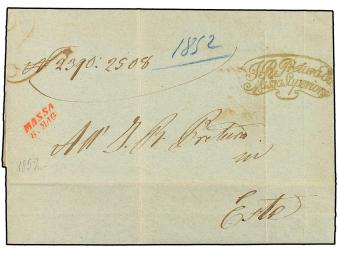 N 2390: 2508
1852
I. R. Pretura di
Massa Superiore
MASSA
8. MAG
All' I. R. Pretura
in
1852
Este